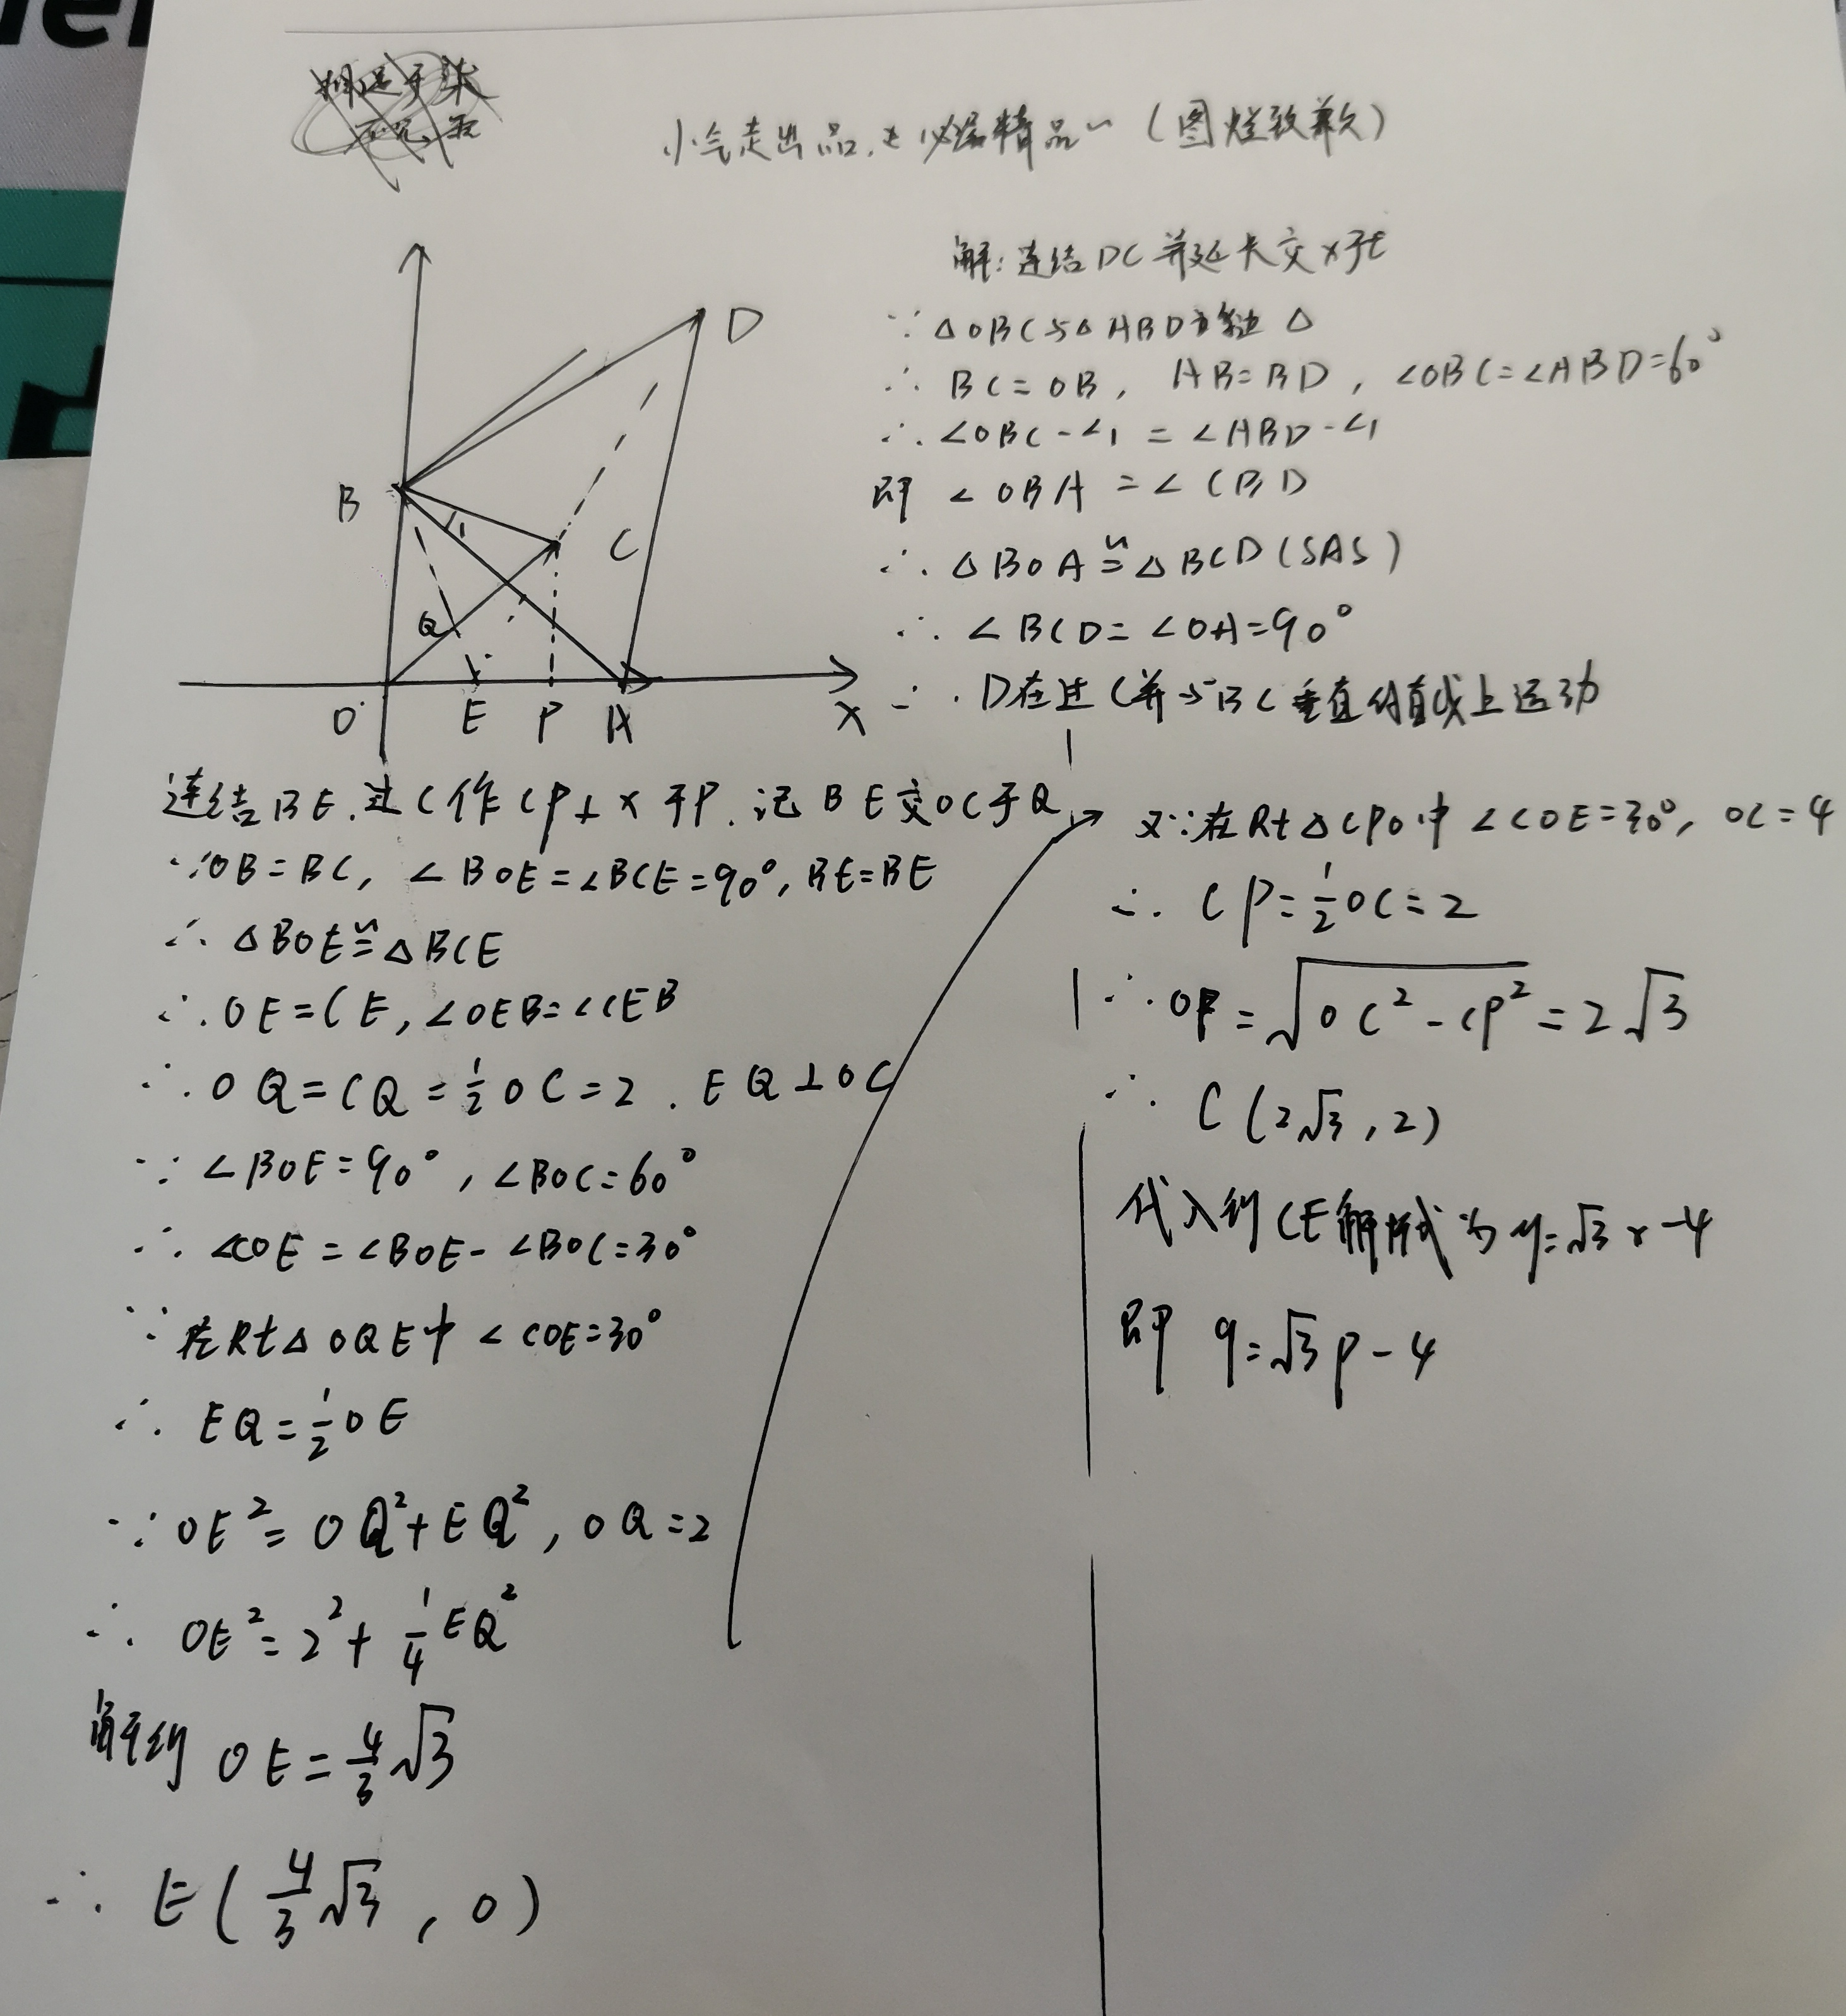 小气走出品,必属精品~(图烂致歉)
D
B
1
C
Q
O E P A X
解:连结DC并延长交x于E
∵△OBC与△ABD为等边△
∴BC=OB, AB=BD, ∠OBC=∠ABD=60°
∴∠OBC-∠1=∠ABD-∠1
即∠OBA=∠CBD
∴△BOA≌△BCD(SAS)
∴∠BCD=∠OA=90°
∴D在过C并与BC垂直的直线上运动
连结BE.过C作CP⊥x于P.记BE交OC于Q
∵OB=BC, ∠BOE=∠BCE=90°, BE=BE
∴△BOE≌△BCE
∴OE=CE, ∠OEB=∠CEB
∴OQ=CQ=1/2OC=2. EQ⊥OC
∵∠BOE=90°, ∠BOC=60°
∴∠COE=∠BOE-∠BOC=30°
∵在Rt△OQE中∠COE=30°
∴EQ=1/2OE
∵OE²=OQ²+EQ², OQ=2
∴OE²=2²+1/4EQ²
解得OE=4/3√3
∴E(4/3√3, 0)
又∵在Rt△CPO中∠COE=30°, OC=4
∴CP=1/2OC=2
∴OP=√OC²-CP²=2√3
∴C(2√3, 2)
代入得CE解析式为y=√3x-4
即q=√3p-4